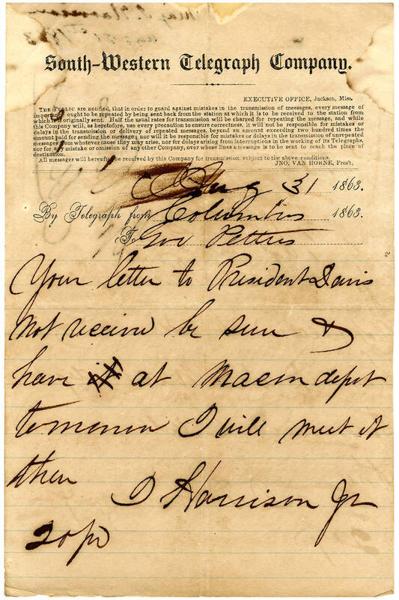 South-Western Telegraph Company.
EXECUTIVE OFFICE, Jackson, Miss.
The PUBLIC are notified, that in order to guard against mistakes in the transmission of messages, every message of
importance ought to be repeated by being sent back from the station at which it is to be received to the station from
which it is originally sent. Half the usual rates for transmission will be charged for repeating the message, and while
this Company will, as heretofore, use every precaution to ensure correctness, it will not be responsible for mistakes or
delays in the transmission or delivery of repeated messages, beyond an amount exceeding two hundred times the
amount paid for sending the messages; nor will it be responsible for mistakes or delays in the transmission of unrepeated
messages, from whatever cause they may arise, nor for delays arising from interruptions in the working of its Telegraphs,
nor for mistake or omission of any other Company, over whose lines a message is to be sent to reach the place of
destination.
All messages will hereafter be received by this Company for transmission, subject to the above conditions.
JNO. VAN HORNE, Pres't.
Aug 31 1863.
By Telegraph from Columbus 1863.
To Gov Pettus
Your letter to President Davis
not receivd be sure &
have it at Macon depot
tomorrow I will meet it
there
I Harrison Jr
20 pd